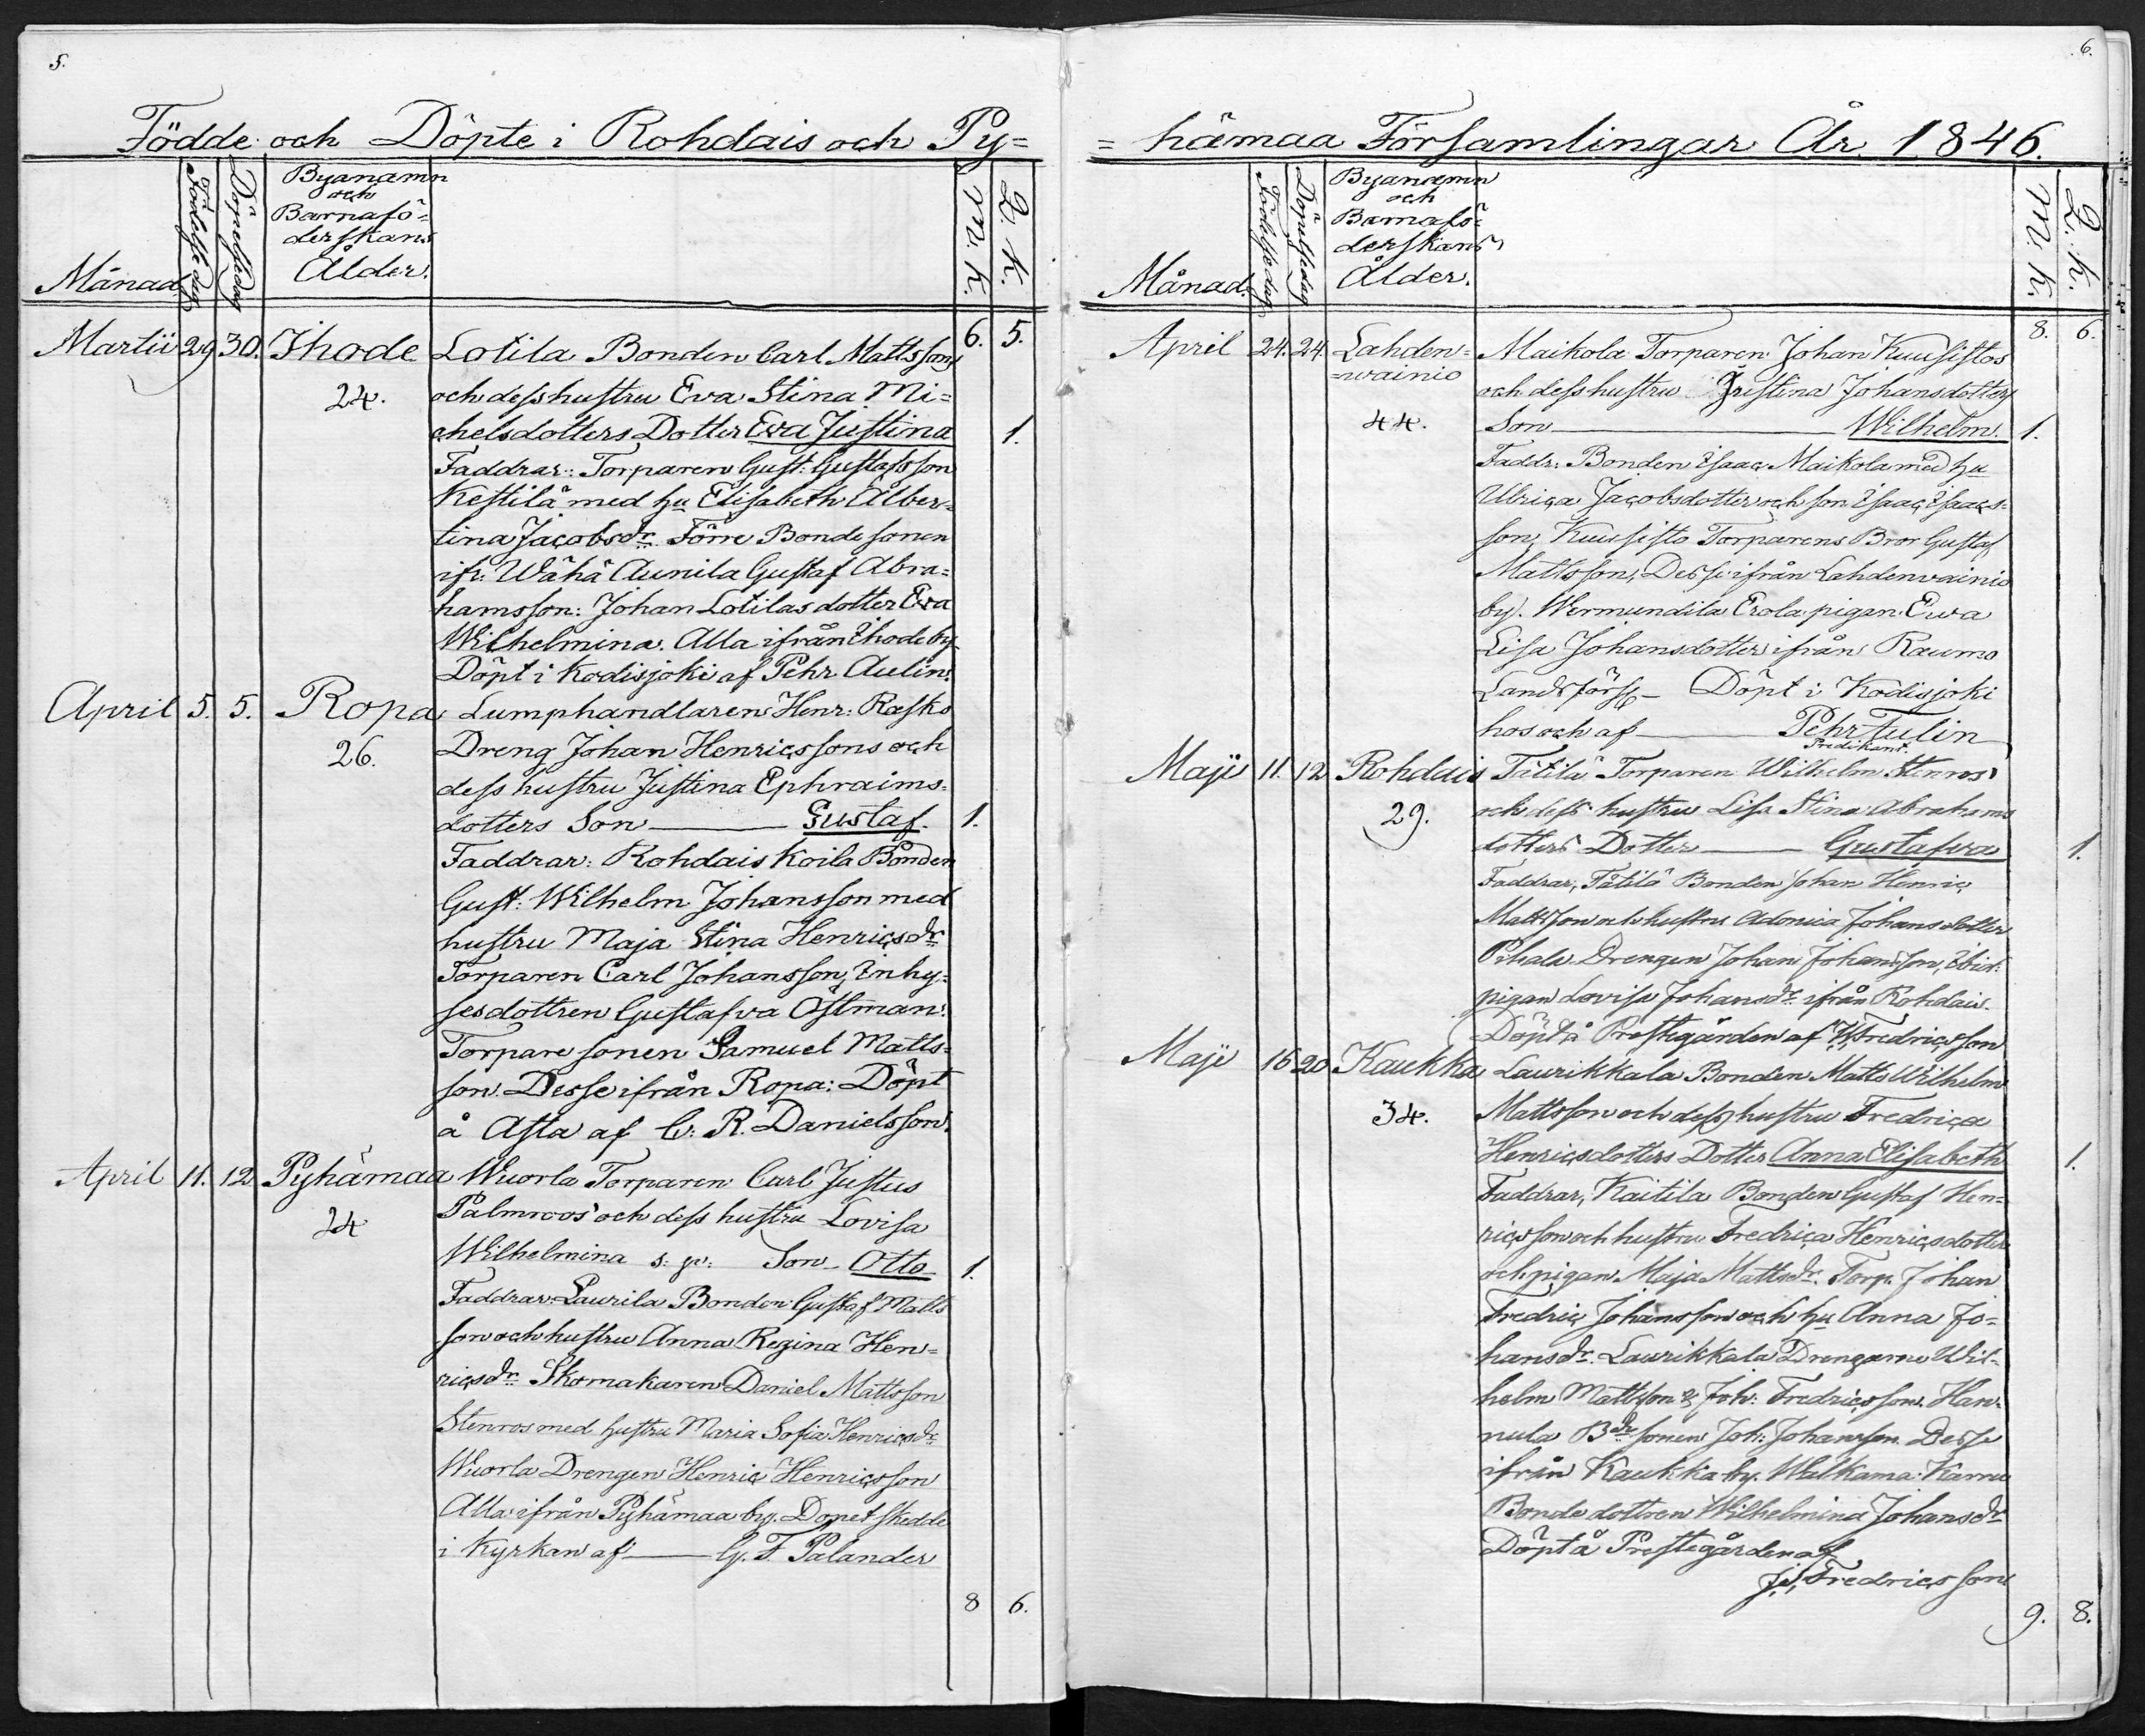 5.
Födde och Döpte i Rohdais och Py=
Månad
Födelse dag
Döpelsedag
Byanamn
och
Barnafö=
derskans
Ålder.
M. K.
Q. K.
6. 5.
Martii 29 30. Ihode Lotila Bonden Carl Mattssons
24. och dess hustru Ewa Stina Mi=
chelsdotters Dotter Ewa Justina 1.
Faddrar: Torparen Gust: Gustafsson
Kestilä med hu Elisabeth Alber=
tina Jacobsdr. Förre Bonde sonen
ifr: Wähä Aunila Gustaf Abra=
hamsson: Johan Lotilas dotter Ewa
Wilhelmina. Alla ifrån Ihode by
Döpt i Kodisjoki af Pehr Aulin.
April 5. 5. Ropa Lumphandlaren Henr: Rasks
26. Dreng Johan Henricssons och
dess hustru Justina Ephraims=
dotters Son Gustaf. 1.
Faddrar: Rohdais Koila Bonden
Gust: Wilhelm Johansson med
hustru Maja Stina Henricsdr
Torparen Carl Johansson, Inhy=
sesdottren Gustafva Östman.
Torpare sonen Samuel Matts=
son. Desse ifrån Ropa: Döpt
å Asta af C: R. Danielsson.
April 11. 12. Pyhämaa Wuorla Torparen Carl Justus
24 Palmroos och dess hustru Lovisa
Wilhelmina Son Otto 1.
Faddrar: Laurila Bonden Gustaf Matts
son och hustru Anna Regina Hen=
ricsdr Skomakaren Daniel Mattsson
Stenros med hustru Maria Sofia Henricsdr
Wuorla Drengen Henric Henricsson
Alla ifrån Pyhämaa by. Dopet skedde
i Kyrkan af G. F. Palander
8 6.
6.
= hämaa Församlingar År 1846.
Månad
Födelse dag
Döpelsedag
Byanamn
och
Barnafö=
derskans
Ålder.
M. K.
Q. K.
8. 6.
April 24. 24. Lahden= Maikola Torparen Johan Kuusistos
=wainio och dess hustru Justina Johansdotters
44. Son Wilhelm. 1.
Faddr: Bonden Isaac Maikola med hu
Ulrica Jacobsdotter och son Isaac Isaacs=
son, Kuusisto Torparens Bror Gustaf
Mattsson, Desse ifrån Lahdenwainio
by. Wermundila Erola pigan Ewa
Lisa Johansdotter ifrån Raumo
Landsförs: Döpt i Kodisjoki
hos och af Pehr Tulin
Predikant.
Maji 11. 12 Rohdais Tätilä Torparen Wilhelm Stenros
29. och dess hustru Lisa Stina Abrahams
dotters Dotter Gustafva 1.
Faddrar, Tätilä Bonden Johan Henric
Mattsson och hustru Adonica Johansdotter
Pihala Drengen Johan Johansson, Ibid:
pigan Lovisa Johansdr ifrån Rohdais.
Döpt å Prestegården af Fredricsson
Maji 16 20 Kaukka Laurikkala Bonden Matts Wilhelm
34. Mattsson och dess hustru Fredrica
Henricsdotters Dotter Anna Elisabeth 1.
Faddrar, Kaitila Bonden Gustaf Hen=
ricsson och hustru Fredrica Henricsdotter
och pigan Maja Mattsdr. Torp. Johan
Fredric Johansson och hu Anna Jo=
hansdr. Laurikkala Drengarne Wil=
helm Mattsson & Joh: Fredricsson. Han=
nula Bde sonen Joh: Johansson. Desse
ifrån Kaukka by. Walkama: Karru
Bonde dottren Wilhelmina Johansdr
Döpt å Prestegården af
Fredricsson
9. 8.